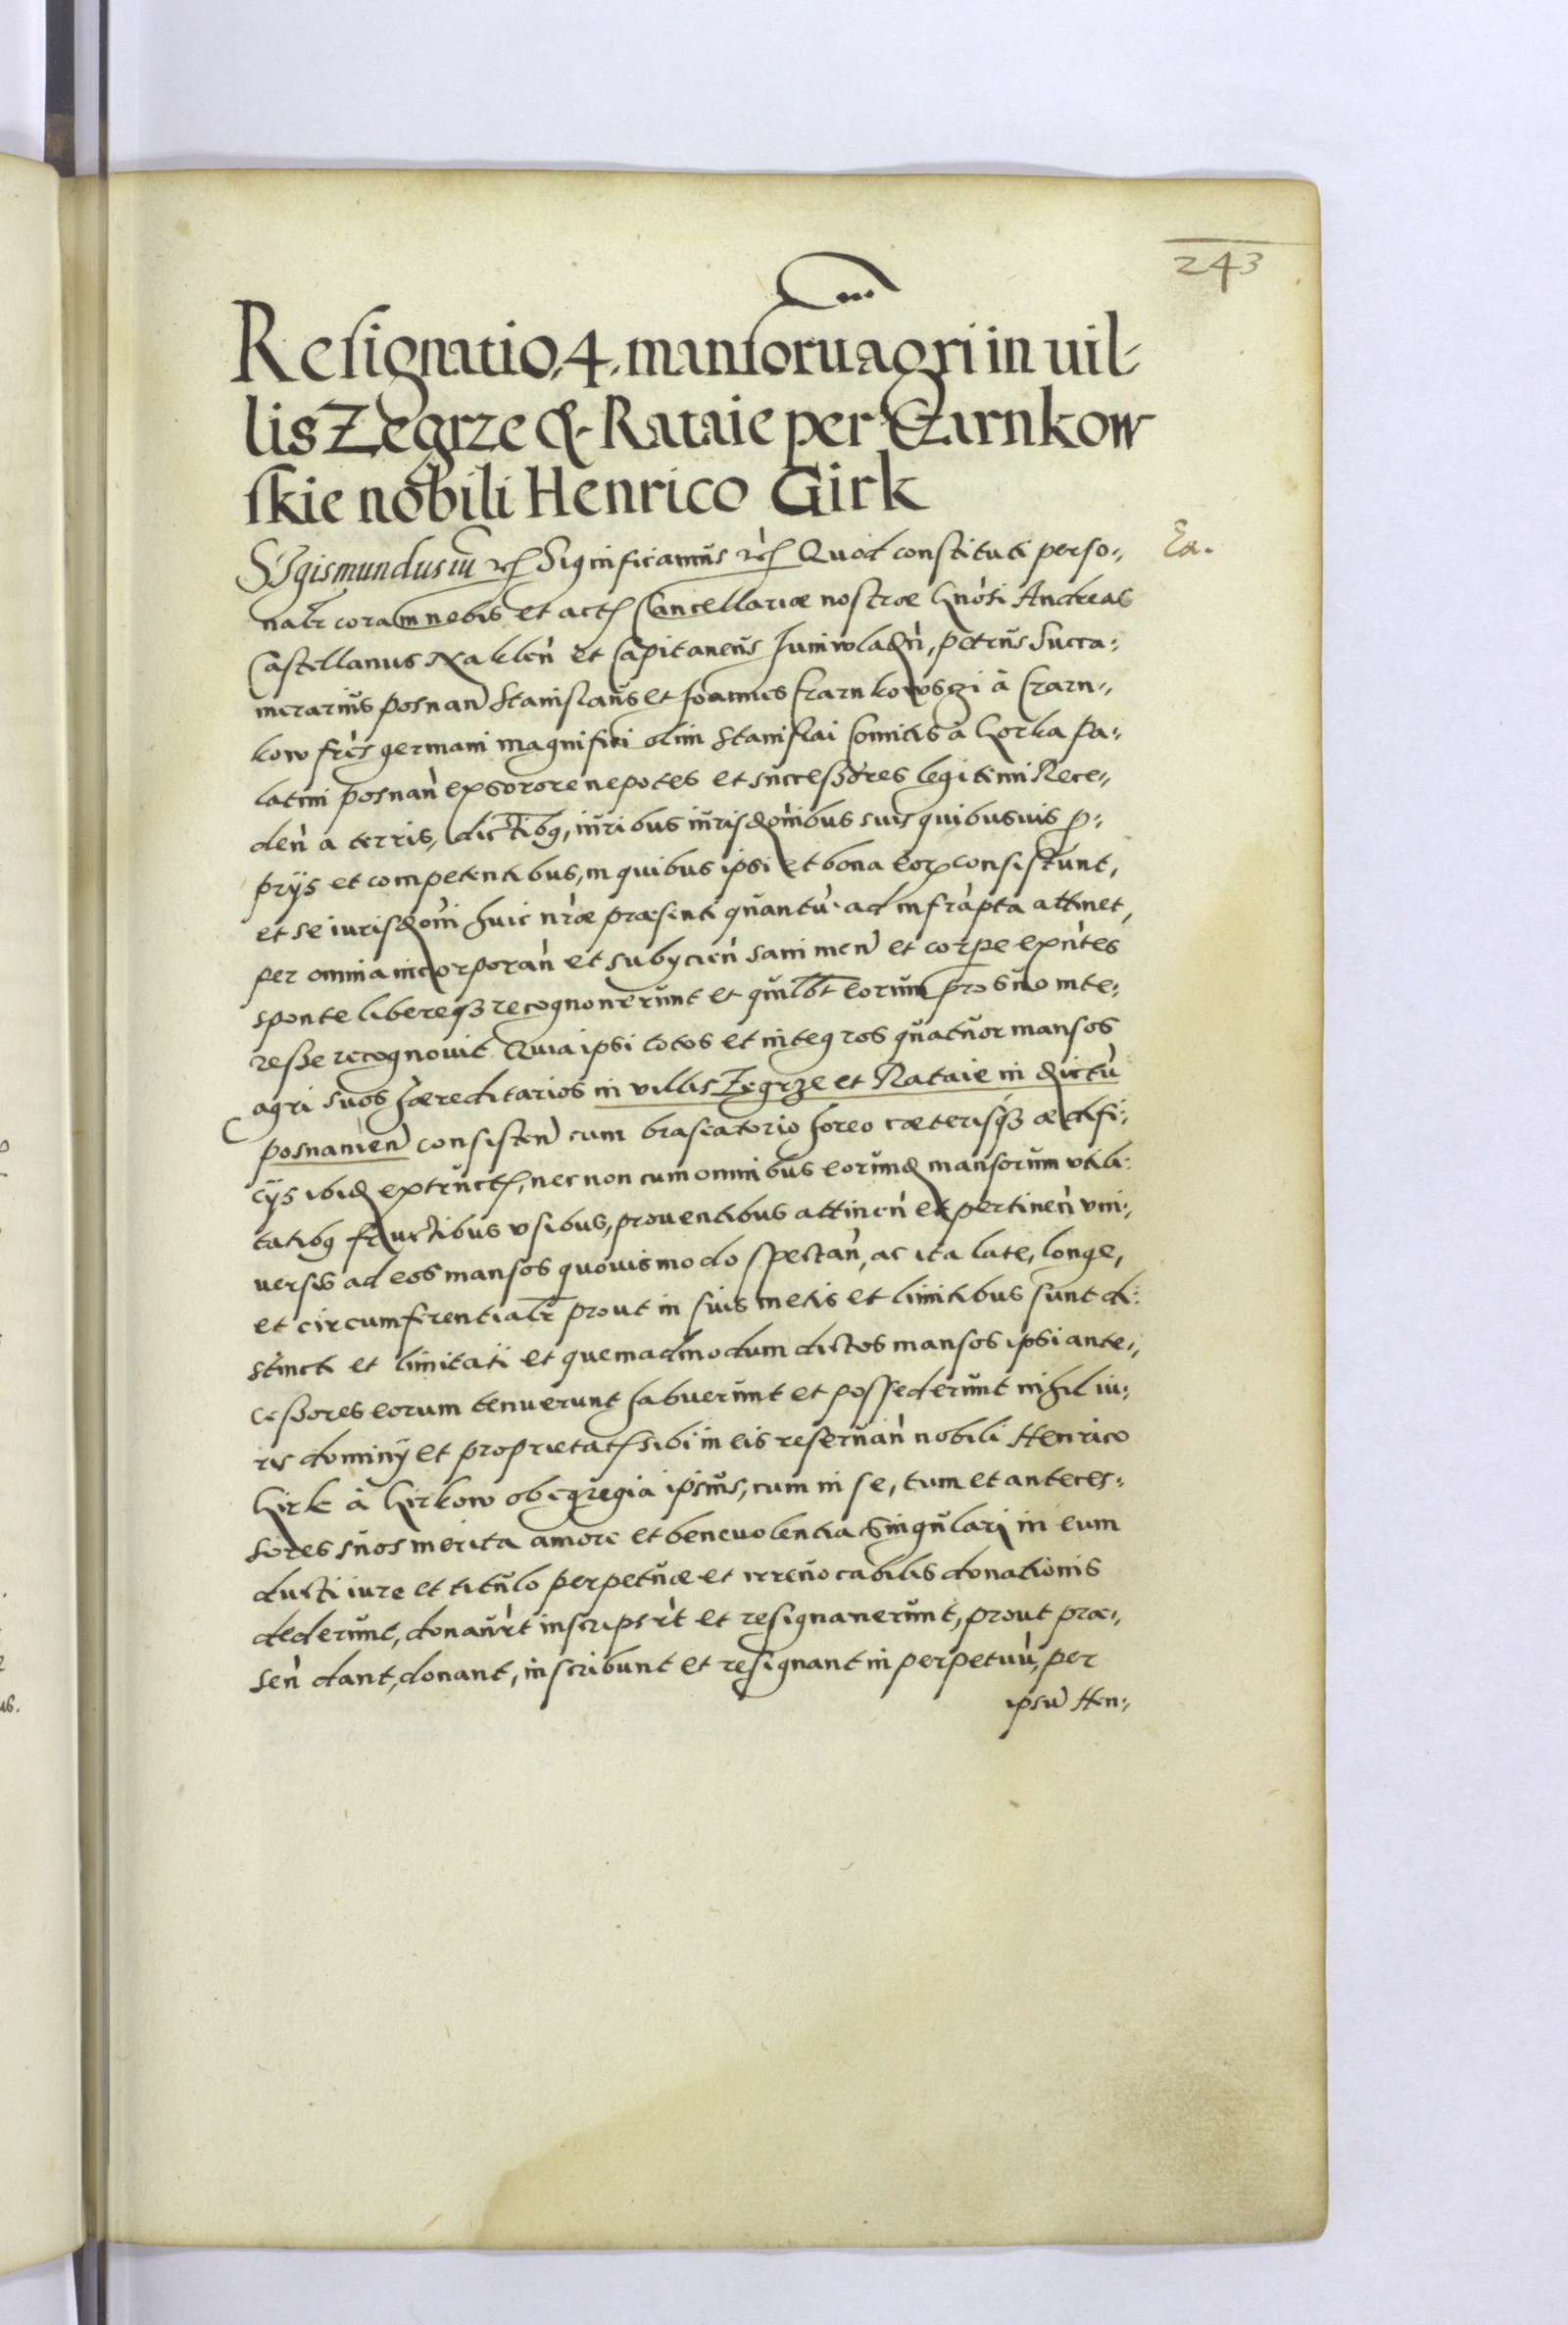 243
Resignatio 4. mansorũ agri in uil-
lis Zegrze & Rataie per Czarnkow
skie nobili Henrico Girk
Sigismundus iii etc Significamus etc Quod constituti perso-, Ea.
nalr coram nobis et actis Cancellariæ nostræ Gnosi Andreas
Castellanus Naklen et Capitaneus Juniwladn, petrus Succa:
merarius posnan Stanislaus et Joannes Czarnkowsczi à Czarn-,
kow frēs germani magnifici olim Stanislai Comitis à Gorka Pa:
latini posnan ex sorore nepotes et successores legitimi Rece-,
den a terris, dictibq, iuribus iurisdonibus suis quibusuis p-,
prijs et competentibus, in quibus ipsi et bona eorz consistunt,
et se iurisdoni huic nræ præsenti quantu ad infrapta attinet,
per omnia incorporan et subycien sani men et corpe exntes
sponte libereqz recognouerunt et quilbt eorum pro suo inte:
resse recognouit Quia ipsi totos et integros quatuor mansos
agri suos hæreditarios in villis Zegrze et Rataie in dictu
posnanien consisten cum braseatorio horeo cæterisqz ædifi:
cijs ibid extructis, nec non cum omnibus eorund mansorum vtili:
tatibq fructibus vsibus, prouentibus attinen et pertinen vni-,
versis ad eos mansos quouismodo spectan, ac ita late, longe,
et circumferentialr prout in suis metis et limitibus sunt di:
stincti et limitati et quemadmodum dictos mansos ipsi ante-,
cessores eorum tenuerunt habuerunt et possederunt nihil iu:
ris dominij et proprietatis sibi in eis reseruan nobili Henrico
Girk à Girkow ob egregia ipsius, cum in se, tum et anteces:
sores suos merita amore et beneuolentia singulari in eum
ducti iure et titulo perpetuæ et irreuocabilis donationis
dederunt, donaurt inscripsrt et resignauerunt, prout præ-,
sen dant, donant, inscribunt et resignant in perpetuu, per
ipsu Hen-,